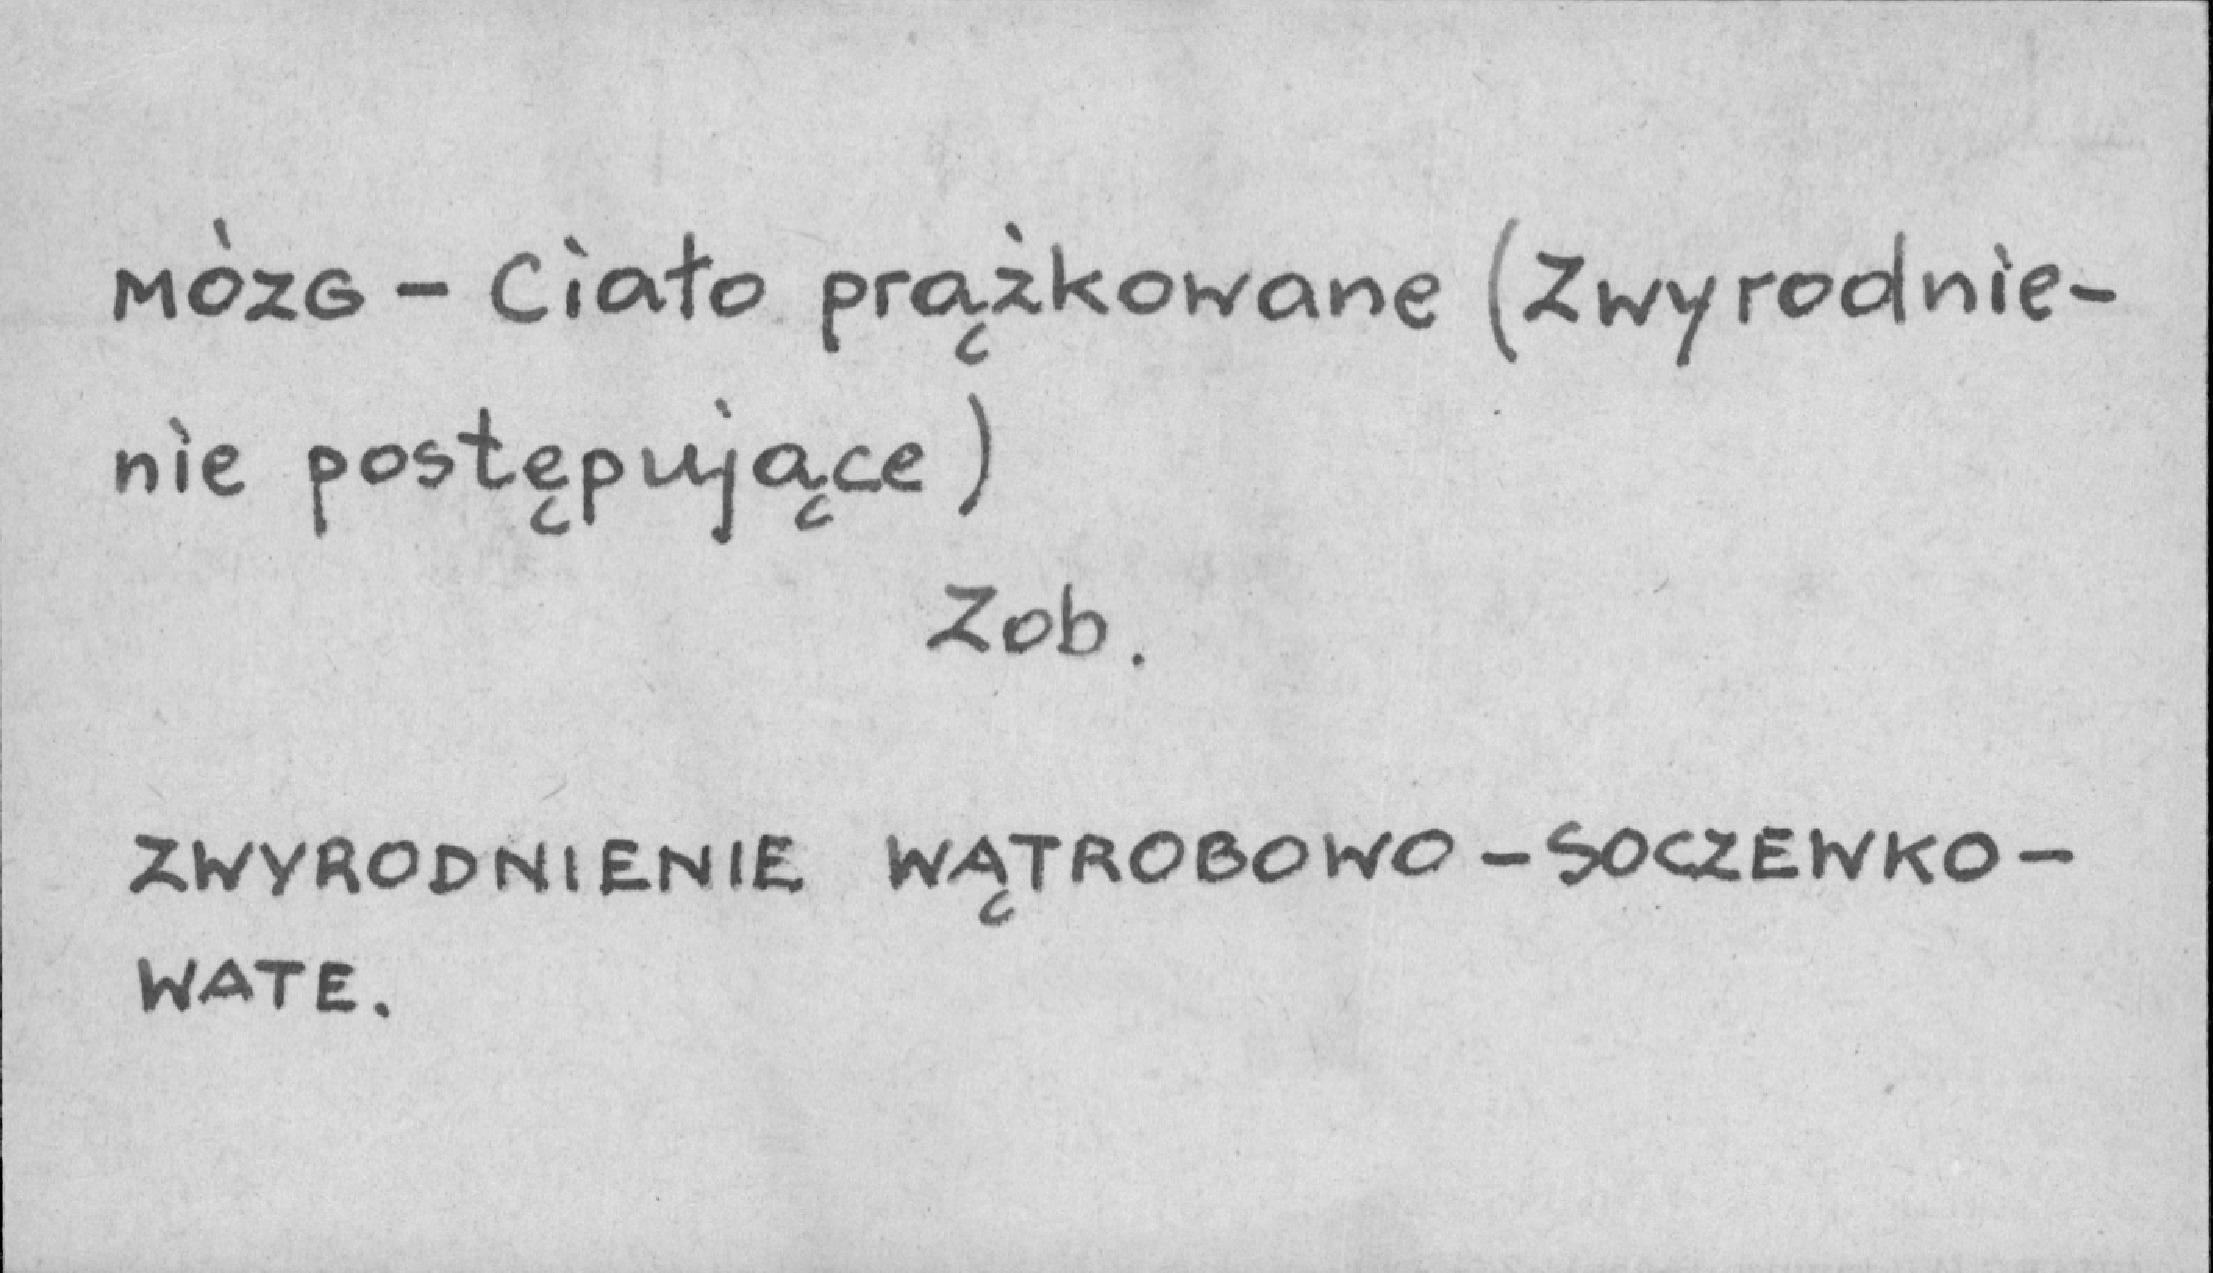 MÓZG - Ciało prążkowane (Zwyrodnie-
nie postępujące)
Zob.
ZWYRODNIENIE WĄTROBOWO - SOCZEWKO -
WATE.